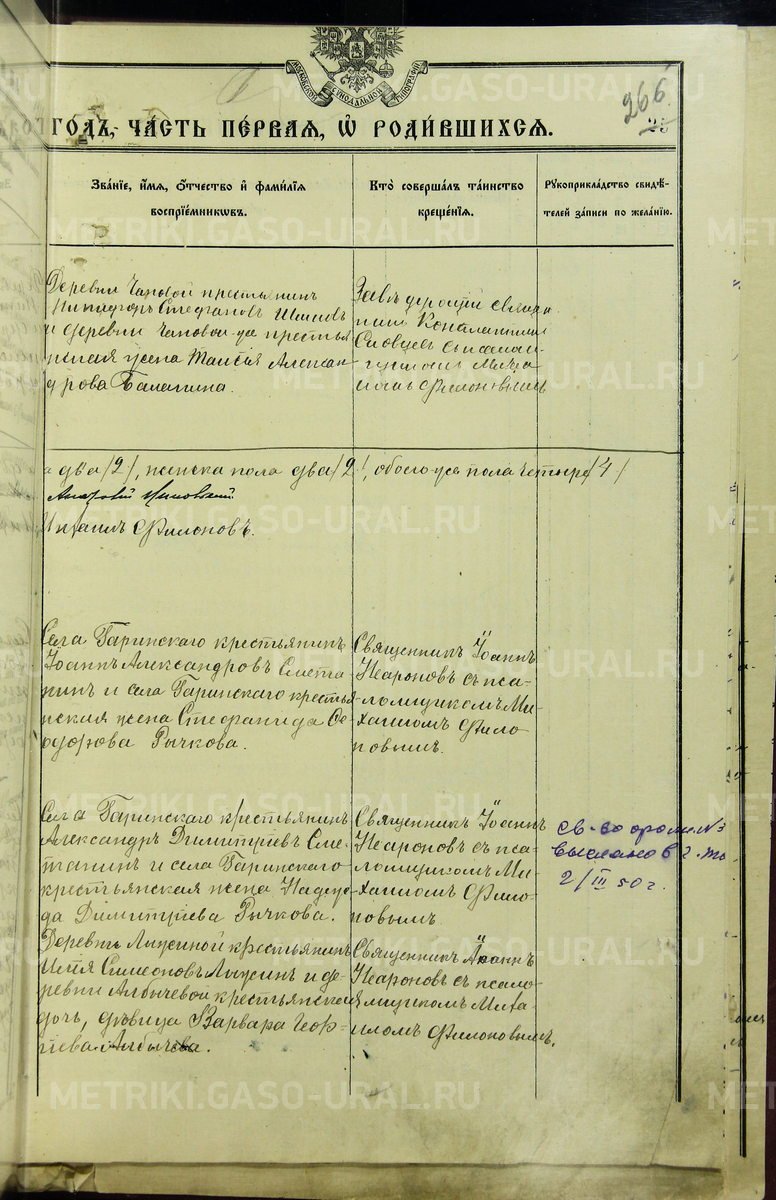 МОСКОВСКОЙ СѴНОДАЛЬНОЙ ТИПОГРАФІИ
266
25
ГОДЪ, ЧАСТЬ ПЕРВАЯ, Ѡ РОДИВШИХСЯ.
Званіе, имя, отчество и фамилія
воспріемниковъ.
Кто совершалъ таинство
крещенія.
Рукоприкладство свидѣ-
телей записи по желанію.
Деревни крестьянинъ
Никифоръ Стефановъ
и деревни крестья
нская жена Таисія Алексан
дрова
священ
никъ Константинъ
Словцевъ съ псалом-
щикомъ Миха
иломъ Филоновымъ
а два /2/, женска пола два /2/, обоего-же пола четыре /4/
Михаилъ Филоновъ.
Села Гаринскаго крестьянинъ
Іоаннъ Александровъ Смета
нинъ и села Гаринскаго крестья-
нская жена Стефанида Ѳе
одорова Рычкова.
Священникъ Іоаннъ
съ пса-
ломщикомъ Ми-
хаиломъ Фило
новымъ.
Села Гаринскаго крестьянинъ
Александръ Димитріевъ Сме-
танинъ и села Гаринскаго
крестьянская жена Надеж-
да Димитріева Рычкова.
Священникъ Іоаннъ
съ пса-
ломщикомъ Ми-
хаиломъ Фило-
новымъ
св-во о рожд. №
выслано в
2/III 50 г.
Деревни Лыжиной крестьянинъ
Илія Симеоновъ Лыжинъ и де-
ревни Албычевой крестьянская
дочь, дѣвица Варвара Геор-
гіева Албычева.
Священникъ Іоаннъ
съ псало-
мщикомъ Миха-
иломъ Филоновымъ.
METRIKI.GASO-URAL.RU